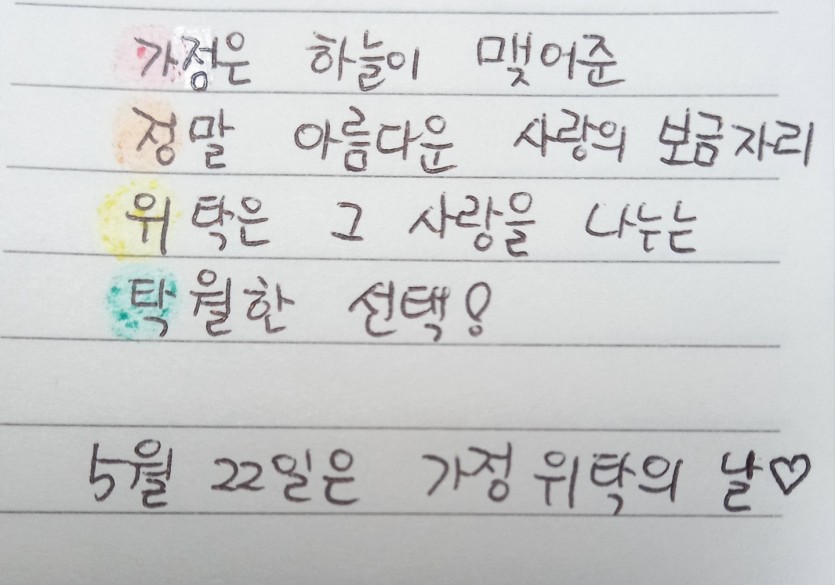 가정은 하늘이 맺어준
정말 아름다운 사랑의 보금자리
위탁은 그 사랑을 나누는
탁월한 선택!
5월 22일은 가정위탁의 날♡